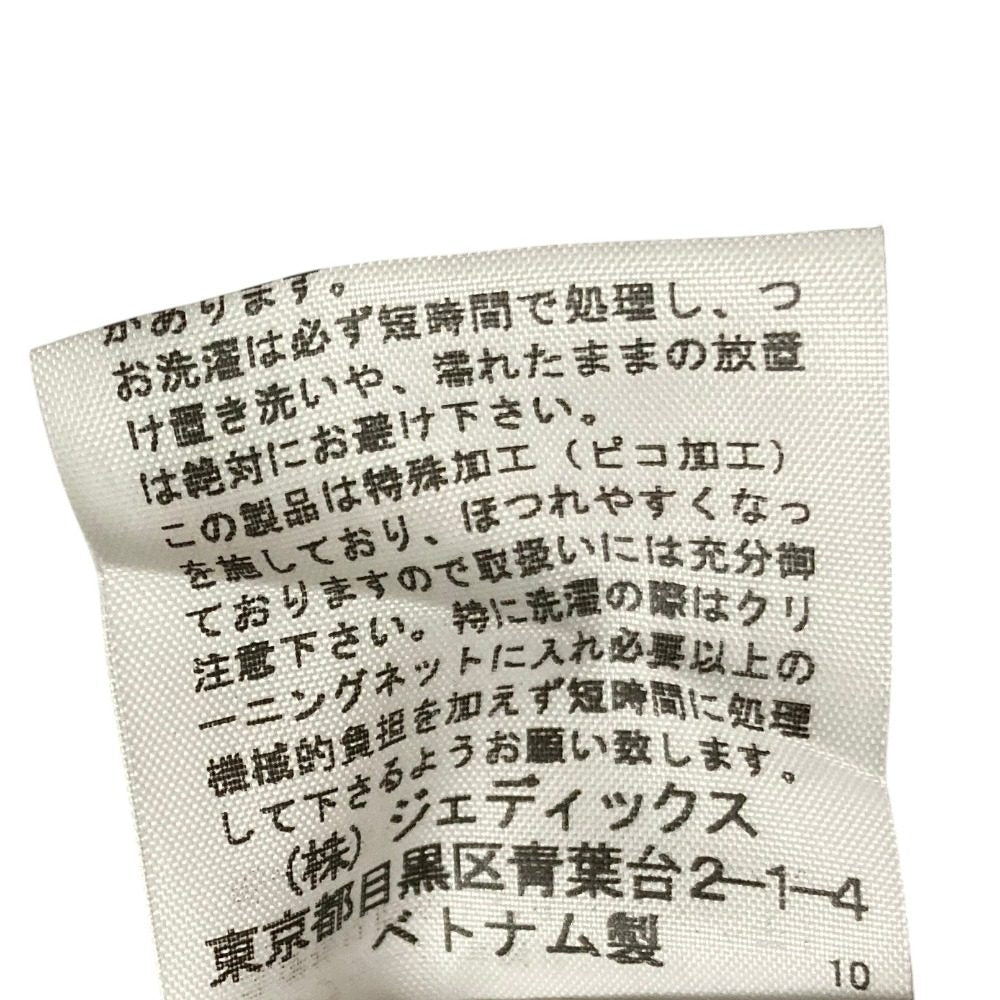 があります。
お洗濯は必ず短時間で処理し、つ
け置き洗いや、濡れたままの放置
は絶対にお避け下さい。
この製品は特殊加工（ピコ加工）
を施しており、ほつれやすくなっ
ておりますので取扱いには充分御
注意下さい。特に洗濯の際はクリ
ーニングネットに入れ必要以上の
機械的負担を加えず短時間に処理
して下さるようお願い致します。
(株)ジェディックス
東京都目黒区青葉台2-1-4
ベトナム製
10